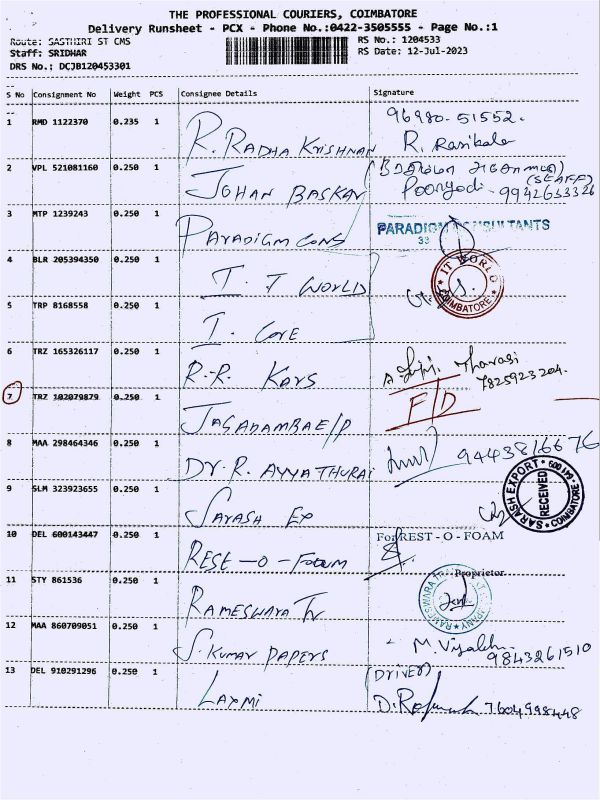 THE PROFESSIONAL COURIERS, COIMBATORE
Delivery Runsheet - PCX - Phone No.:0422-3505555 - Page No.:1
Route: SASTHIRI ST CMS RS No.: 1204533
Staff: SRIDHAR RS Date: 12-Jul-2023
DRS No.: DCJB120453301
S No Consignment No Weight PCS Consignee Details Signature
1 RMD 1122370 0.235 1 R. RADHA KRISHNAN 96980-51552. R. Rasikala
2 VPL 521081160 0.250 1 JOHAN BASKAR (STAFF) 9942633326
3 MTP 1239243 0.250 1 PARADIGM CONS PARADIGM CONSULTANTS 33
4 BLR 205394350 0.250 1 I. T WORLD IT WORLD COIMBATORE
5 TRP 8168558 0.250 1 I. CORE
6 TRZ 165326117 0.250 1 R.R. KARS Tharasi 7825923204.
7 TRZ 102079879 0.250 1 JAGADAMBAE/P F/D
8 MAA 298464346 0.250 1 DR. R. AYYATHURAI 9443816676
9 SLM 323923655 0.250 1 SARASH EX SARASH EXPORT RECEIVED COIMBATORE
10 DEL 600143447 0.250 1 REST-O-FOAM For REST-O-FOAM
Proprietor
11 STY 861536 0.250 1 RAMESWARA TR
12 MAA 860709051 0.250 1 S. KUMAR PAPERS 9843261510
13 DEL 910291296 0.250 1 LAXMI (DRIVER) 7604998448